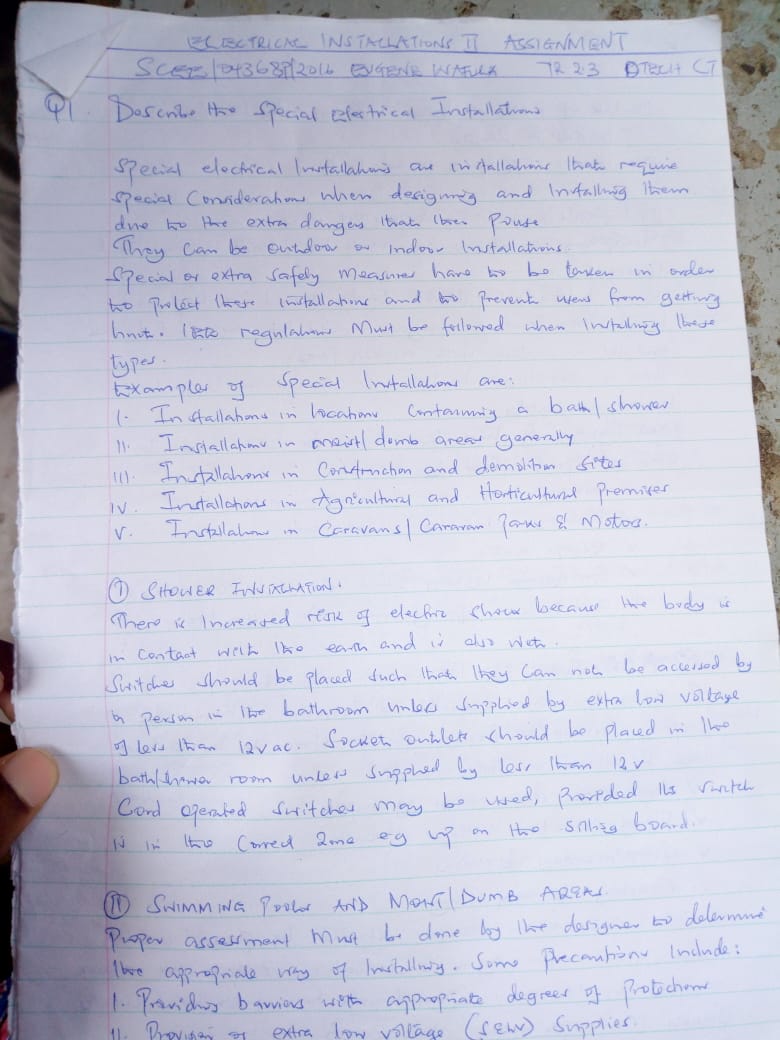 ELECTRICAL INSTALLATIONS II ASSIGNMENT
SCEE/04368P/2016 EUGENE WAFULA 72 2 3 BTECH CT
Q1. Describe the Special Electrical Installations
Special electrical Installations are installations that require
special Considerations when designing and Installing them
due to the extra dangers that they Pouse
They Can be outdoor or indoor Installations.
Special or extra safely measures have to be taken in order
to protect these installations and to prevent users from getting
hurt. regulations Must be followed when Installing these
types.
Examples of Special Installations are:
I. Installations in locations Containing a bath/shower
II. Installations in moist/dumb areas generally
III. Installations in Construction and demolition Sites
IV. Installations in Agricultural and Horticultural Premises
V. Installations in Caravans/Caravan Parks & Motors.
I SHOWER INSTALLATION.
There is Increased risk of electric shock because the body is
in contact with the earth and is also wet.
Switches should be placed such that they Can not be accessed by
a person in the bathroom unless supplied by extra low voltage
of less than 12v ac. Socket outlets should be placed in the
bath/shower room unless supplied by less than 12 v
Cord operated switches may be used, provided its switch
is in the Correct Zone eg up on the board.
II SWIMMING POOLS AND MOIST/DUMB AREAS.
Proper assessment Must be done by the designer to determine
the appropriate way of Installing. Some Precautions Include:
I. Providing barriers with appropriate degrees of Protections
II. Provision of extra low voltage (SELV) Supplies.